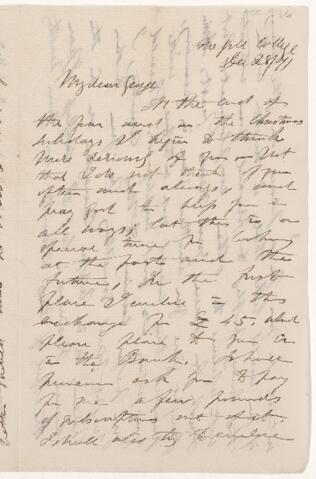 College
Dec 28/71
My dear George
At the end of
the year and in the Christmas
holidays I begin to think
more seriously of you – Not
that I do not think of you
often and always, and
pray God to bless you in
all ways, but this is a
special time for looking
at the past and the
future. In the first
place I enclose in this
exchange for £45. which
please place to your a/c
in the Bank. I
ask you to pay
for me a few pounds
of subscriptions out of it.
I shall also try to enclose